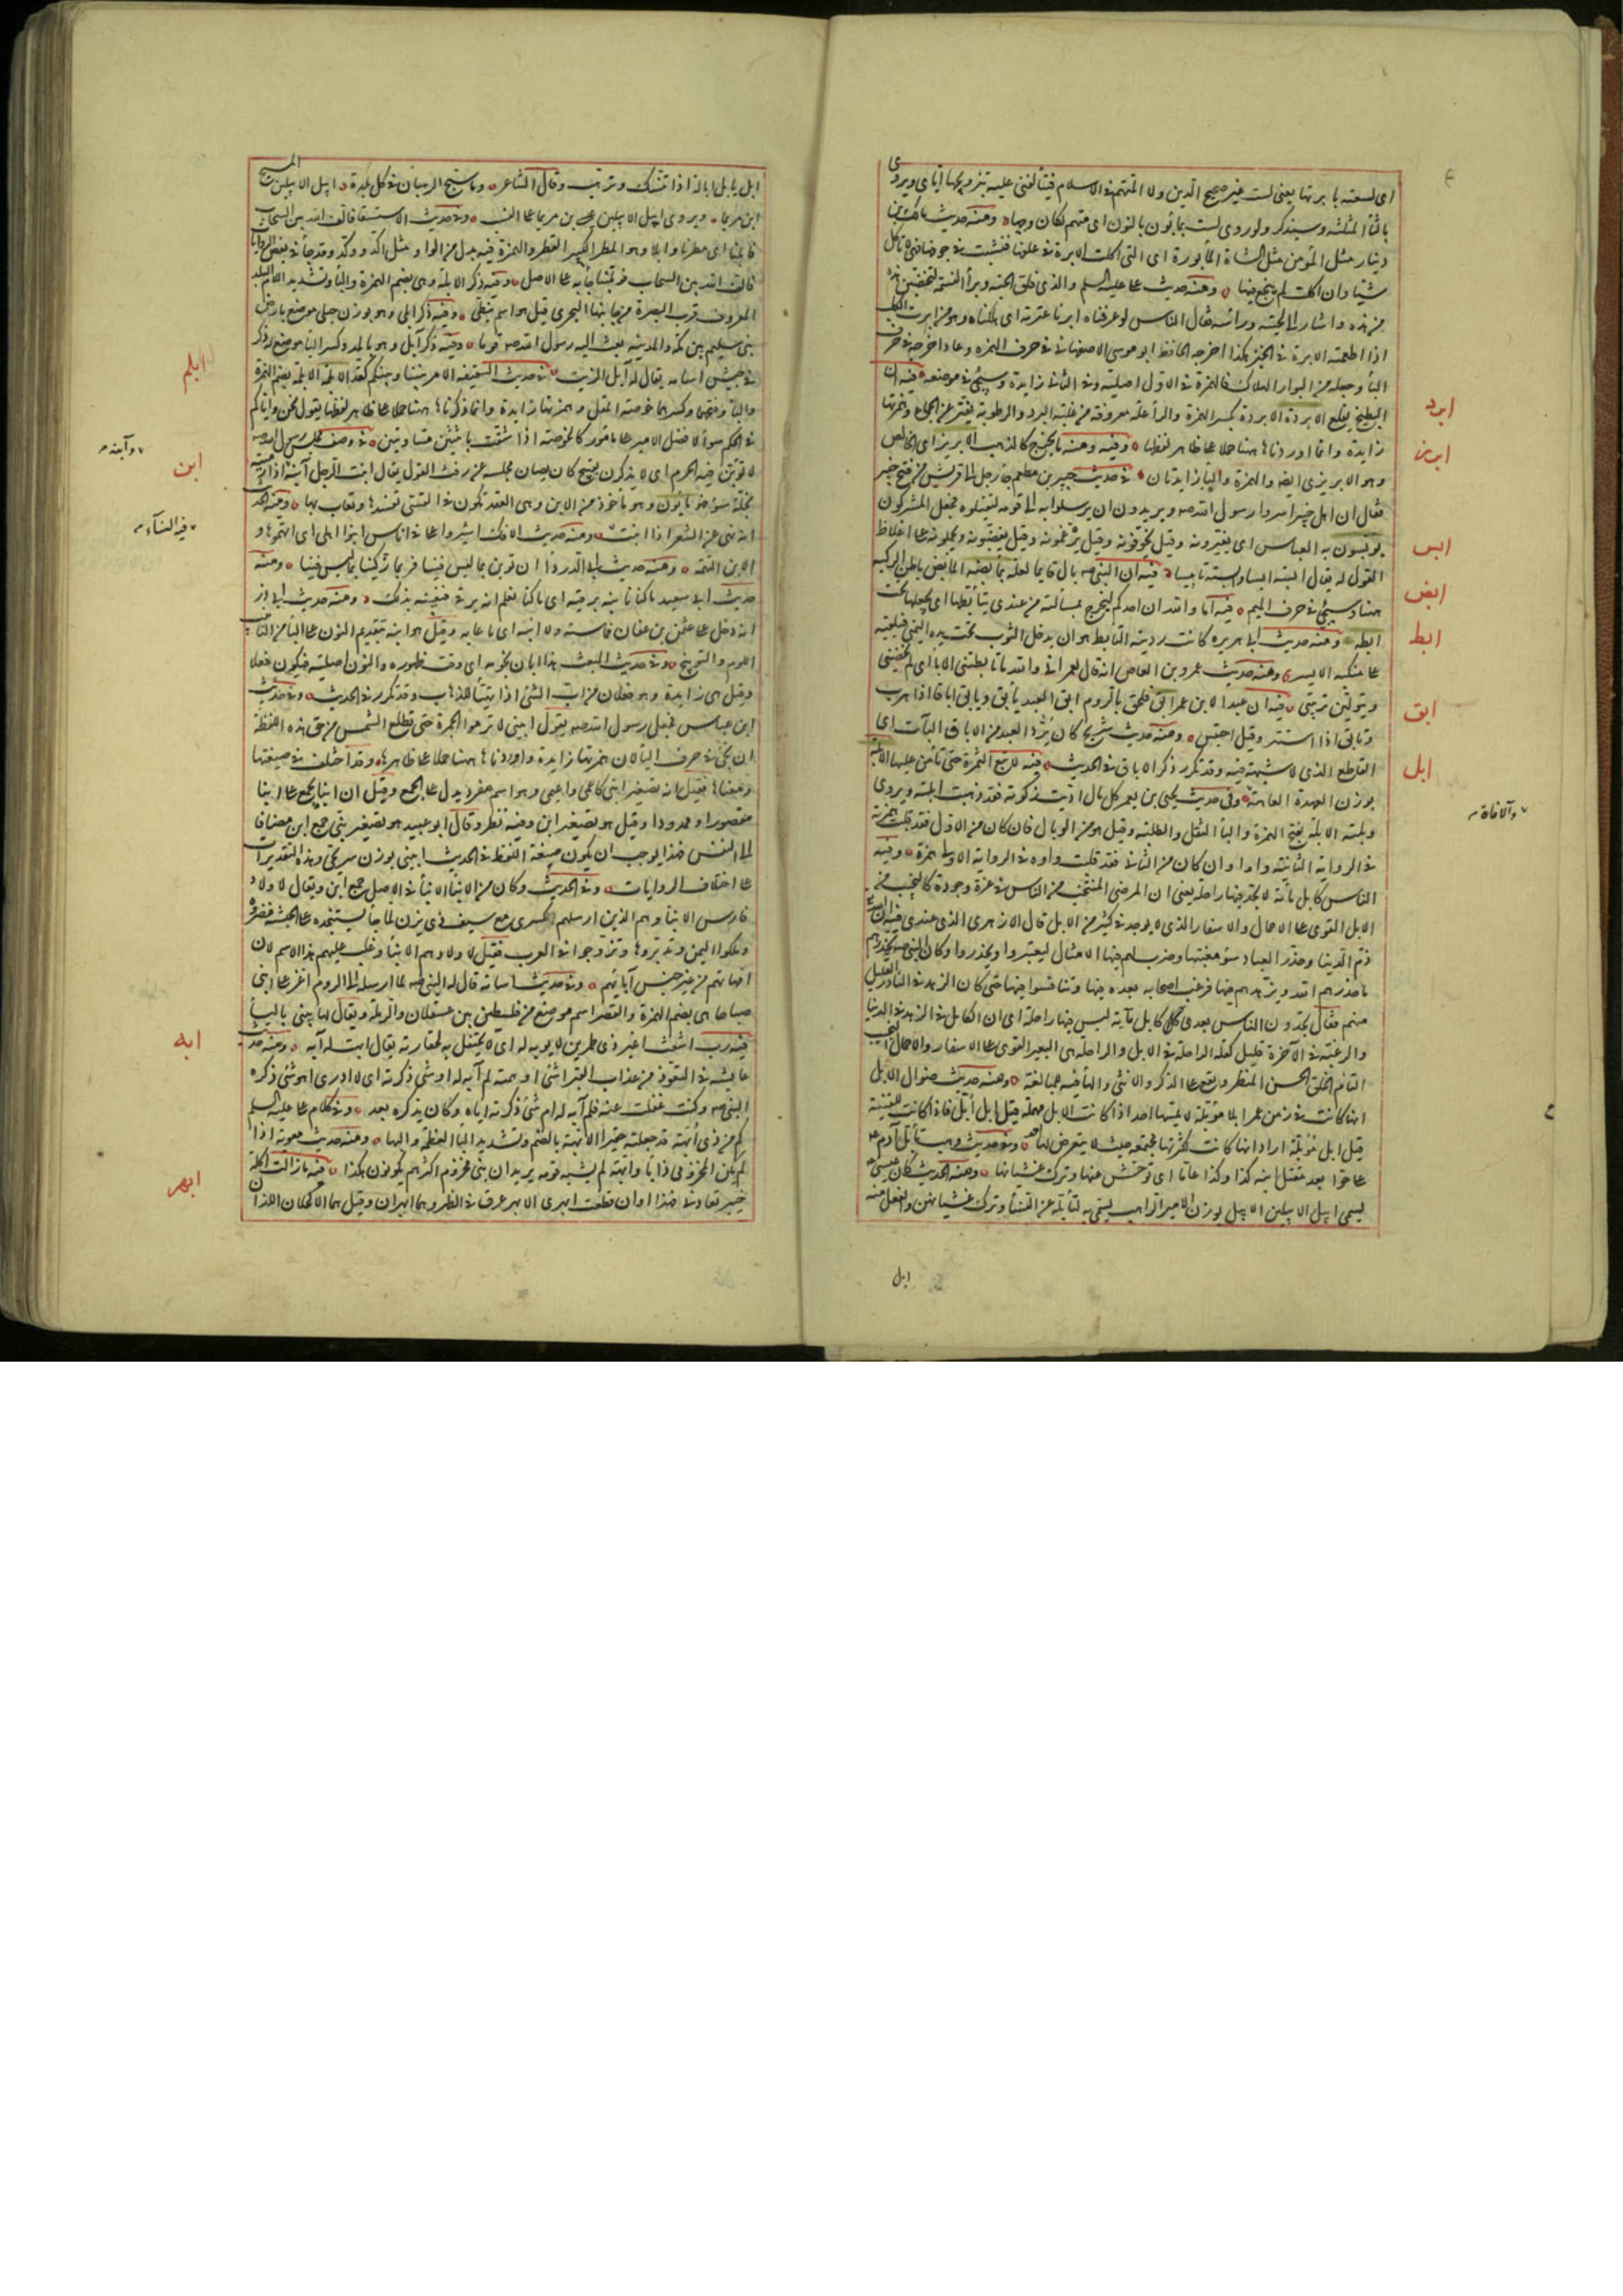 اى لسعته بابرتها يعنى لست غير صحيح الدين ولا المتهم فى الاسلام فيتالفنى عليه بتزويجها اياى ويروى
بالثا المثلثه وسيذكر ولو روى لست بمابون بالنون اى متهم لكان وجها ومنه حديث مالك بن
دينار مثل المؤمن مثل الشاة المأبورة اى التى اكلت الابرة فى علفها فنشبت فى جوفها فهى لا تاكل
شيئا وان اكلت لم ينجع فيها ومنه حديث على عليه السلم والذى فلق الحبة وبرأ النسمة لتخضبن هذه
من هذه واشار الى لحيته ورأسه فقال الناس لو عرفناه ابرنا عترته اى اهلكناه وهو من ابرت الكلب
اذا اطعمته الابرة فى الخبز هكذا اخرجه الحافظ ابو موسى الاصفهانى فى حرف الهمزه وعاد اخرجه فى حرف
البأ وجعله من البوار الهلاك فالهمزة فى الاول اصلية وفى الثانى زايدة وسيجئ فى موضعه فيه ان
ابرد
البطيخ يقلع الابردة الابردة بكسر الهمزة والرأ علة معروفة من غلبة البرد والرطوبة يفتر عن الجماع وهمزتها
زايدة وانما اوردناها ههنا حملا على ظاهر لفظها وفيه ومنه ما يخرج كالذهب الابريز اى الخالص
ابرز
وهو الابريزى ايضا والهمزة واليأ زايدتان فى حديث جبير بن مطعم جأ رجل الى قريش من فتح خيبر
فقال ان اهل خيبر اسروا رسول الله صه ويريدون ان يرسلوا به الى قومه ليقتلوه فجعل المشركون
يؤبسون به العباس اى يعيرونه وقيل يخوفونه وقيل يرغمونه وقيل يغضبونه ويحملونه على اغلاظ
ابس
القول له يقال ابسته ابسا وابسته تابيسا فيه ان النبى صه بال قايما لعلة بمأبضه المأبض باطن الركبه
ابض
ههنا وسيجئ فى حرف الميم فيه اما والله ان احدكم ليخرج بمسألته من عندى يتأبطها اى يجعلها تحت
ابطه ومنه حديث ابى هريره كانت رديته التابط هو ان يدخل الثوب تحت يده اليمنى فيلقيه
ابط
على منكبه الايسر ومنه حديث عمرو بن العاص انه قال لعمر انى والله ما تأبطتنى الامأ اى لم تحضنى
ويتولين تربيتى فيه ان عبدا لابن عمر ابق فلحق بالروم ابق العبد يأبق ويابق اباقا اذا هرب
وتابق اذا استتر وقيل احتبس ومنه حديث شريح كان يرد العبد من الاباق البات اى
ابق
القاطع الذى لا شبهة فيه وقد تكرر ذكر الاباق فى الحديث فيه لا تبع الثمرة حتى تامن عليها الابلة
ابل
بوزن العهدة العاهة وفى حديث يحيى بن يعمر كل مال اديت زكوته فقد ذهبت ابلته ويروى
وآلافة
وبلته الابلة بفتح الهمزة والبأ الثقل والطلبة وقيل هو من الوبال فان كان من الاول فقد قلبت همزته
فى الرواية الثانية واوا وان كان من الثانى فقد قلبت واوه فى الرواية الاولى همزة وفيه
الناس كابل مأية لا تجد فيها راحلة يعنى ان المرضى المنتجب من الناس فى عزة وجوده كالنجيب من
الابل القوى على الاحمال والاسفار الذى لا يوجد فى كثير من الابل قال الازهرى الذى عندى فيه ان الله
ذم الدنيا وحذر العباد سؤ مغبتها وضرب لهم فيها الامثال ليعتبروا ويحذروا وكان النبى صه يحذرهم
ما حذرهم الله ويزهدهم فيها فرغب اصحابه بعده فيها وتنافسوا فيها حتى كان الزهد فى النادر القليل
منهم فقال تجدون الناس بعدى كابل مأية ليس فيها راحلة اى ان الكامل فى الزهد فى الدنيا
والرغبة فى الآخرة قليل كقلة الراحلة فى الابل والراحلة هى البعير القوى على الاسفار والاحمال النجيب
التام الخلق الحسن المنظر ويقع على الذكر والانثى والهأ فيه للمبالغة ومنه حديث ضوال الابل
انها كانت فى زمن عمر ابلا مؤبلة لا يمسها احد اذا كانت الابل مهملة قيل ابل أبّل فاذا كانت للقنية
قيل ابل مؤبلة اراد انها كانت لكثرتها مجتمعه حيث لا يتعرض لها وفى حديث وهب تأبل آدم عم
على حوا بعد مقتل ابنه كذا وكذا عاما اى توحش عنها وترك غشيانها ومنه الحديث كان عيسى
يسمى ابيل الابيلين الابيل بوزن الامير الراهب يسمى به لتأبله عن النسأ وترك غشيانهن والفعل منه
ابل
المسيح
ابل يابل ابالة اذا تنسك وترهب وقال الشاعر وما سبح الرهبان فى كل بلدة ابيل الابيلين
ابن مريما ويروى ابيل الابيلين عيسى بن مريما على النسب وفى حديث الاستسقا فالف الله بين السحاب
فابلنا اى مطرنا وابلا وهو المطر الكبير القطر والهمزة فيه بدل من الواو مثل اكد ووكد وقد جأ فى بعض الروايات
فالف الله بين السحاب فوبلتنا جأ به على الاصل وفيه ذكر الابلة وهى بضم الهمزة والبأ وتشديد اللام البلد
المعروف قرب البصرة من جانبها البحرى قيل هو اسم نبطى وفيه ذكر ابلى وهو بوزن حبلى موضع بارض
بنى سليم بين مكة والمدينه بعث اليه رسول الله صه قوما وفيه ذكر آبل وهو بالمد وكسر البأ موضع له ذكر
فى جيش اسامه يقال له آبل الزيت فى حديث السقيفه الامر بيننا وبينكم كقد الابلمة الابلمة بضم الهمزة
ابلم
واللام وفتحهما وكسرهما خوصة المقل وهمزتها زايدة وانما ذكرناها ههنا حملا على ظاهر لفظها يقول نحن واياكم
فى الحكم سوأ لا فضل لامير على مأمور كالخوصة اذا شقت باثنين متساويتين فى وصف مجلس رسول الله صه
وآبنه
لا تؤبن فيه الحرم اى لا يذكرن بقبيح كان يصان مجلسه عن رفث القول يقال ابنت الرجل آبنه اذا رميته
ابن
بخلة سوء فهو مأبون وهو مأخوذ من الابن وهى العقد تكون فى القسى تفسدها وتعاب بها ومنه الحديث
انه نهى عن الشعر اذا ابنت ومنه حديث الافك اشيروا على فى اناس ابنوا اهلى اى اتهموها و
فيه النسآء
الابن التهمة ومنه حديث ابى الدردا ان نؤبن بما ليس فينا فربما زكينا بما ليس فينا ومنه
حديث ابى سعيد ما كنا نابنه برقية اى ما كنا نعلم انه يرقى فنعيبه بذلك ومنه حديث ابى ذر
انه دخل على عثمن بن عفان فما سبه ولا ابنه اى ما عابه وقيل هو انبه بتقديم النون على البأ من التأنيب
اللوم والتوبيخ وفى حديث المبعث هذا ابان نجومه اى وقت ظهوره والنون اصلية فيكون فعالا
وقيل هى زايدة وهو فعلان من اب الشئ اذا تهيأ للذهاب وقد تكرر فى الحديث وفى حديث
ابن عباس فجعل رسول الله صه يقول ابينى لا ترموا الجمرة حتى تطلع الشمس من حق هذه اللفظة
ان تجئ فى حرف البأ لان همزتها زايدة واوردناها ههنا حملا على ظاهرها وقد اختلف فى صيغتها
ومعناها فقيل انه تصغير ابنى كاعمى واعيمى وهو اسم مفرد يدل على الجمع وقيل ان ابنا يجمع على ابنا
مقصورا وممدودا وقيل هو تصغير ابن وفيه نظر وقال ابو عبيد هو تصغير بنى جمع ابن مضافا
الى النفس فهذا يوجب ان يكون صيغة اللفظ فى الحديث ابينى بوزن سريجى وهذه التقديرات
على اختلاف الروايات وفى الحديث وكان من الابنأ الابنأ فى الاصل جمع ابن ويقال لاولاد
فارس الابنأ وهم الذين ارسلهم كسرى مع سيف ذى يزن لما جأ يستنجده على الحبشة فنصروه
وملكوا اليمن وتديروها وتزوجوا فى العرب فقيل لاولادهم الابنأ وغلب عليهم هذا الاسم لان
امهاتهم من غير جنس آبايهم وفى حديث اسامة قال له النبى صه لما ارسله الى الروم اغر على ابنى
صباحا هى بضم الهمزة والقصر اسم موضع من فلسطين بين عسقلان والرملة ويقال لها يبنى باليأ
فيه رب اشعث اغبر ذى طمرين لا يوبه له اى لا يحتفل به لحقارته يقال ابهت له آبه ومنه حديث
ابه
عايشه فى التعوذ من عذاب القبر اشئ اوهمته لم آبه له او شئ ذكرته اى لا ادرى اهو شئ ذكره
النبى صه وكنت غفلت عنه فلم آبه له ام شئ ذكرته اياه وكان يذكره بعد وفى كلام على عليه السلم
كم من ذى أبهة قد جعلته حقيرا الابهة بالضم وتشديد البأ العظمة والبها ومنه حديث معوية اذا
لم يكن المخزومى ذا بأو وابهة لم يشبه قومه يريد ان بنى مخزوم اكثرهم يكونون هكذا فيه ما زالت اكلة
ابهر
خيبر تعاودنى فهذا اوان قطعت ابهرى الابهر عرق فى الظهر وهما ابهران وقيل هما الاكحلان اللذان